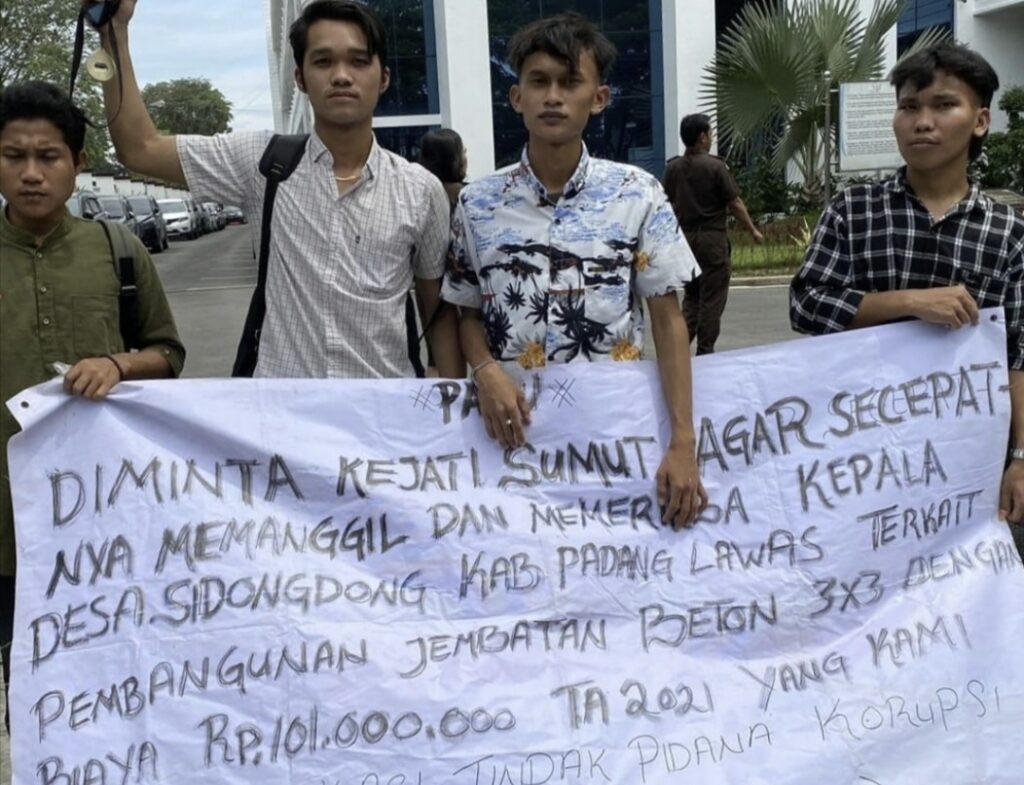 DIMINTA KEJATI SUMUT AGAR SECEPAT-
NYA MEMANGGIL DAN MEMERIKSA KEPALA
DESA.SIDONGDONG KAB PADANG LAWAS TERKAIT
PEMBANGUNAN JEMBATAN BETON 3X3 DENGAN
BIAYA Rp.101.000.000 TA 2021 YANG KAMI
TINDAK PIDANA KORUPSI